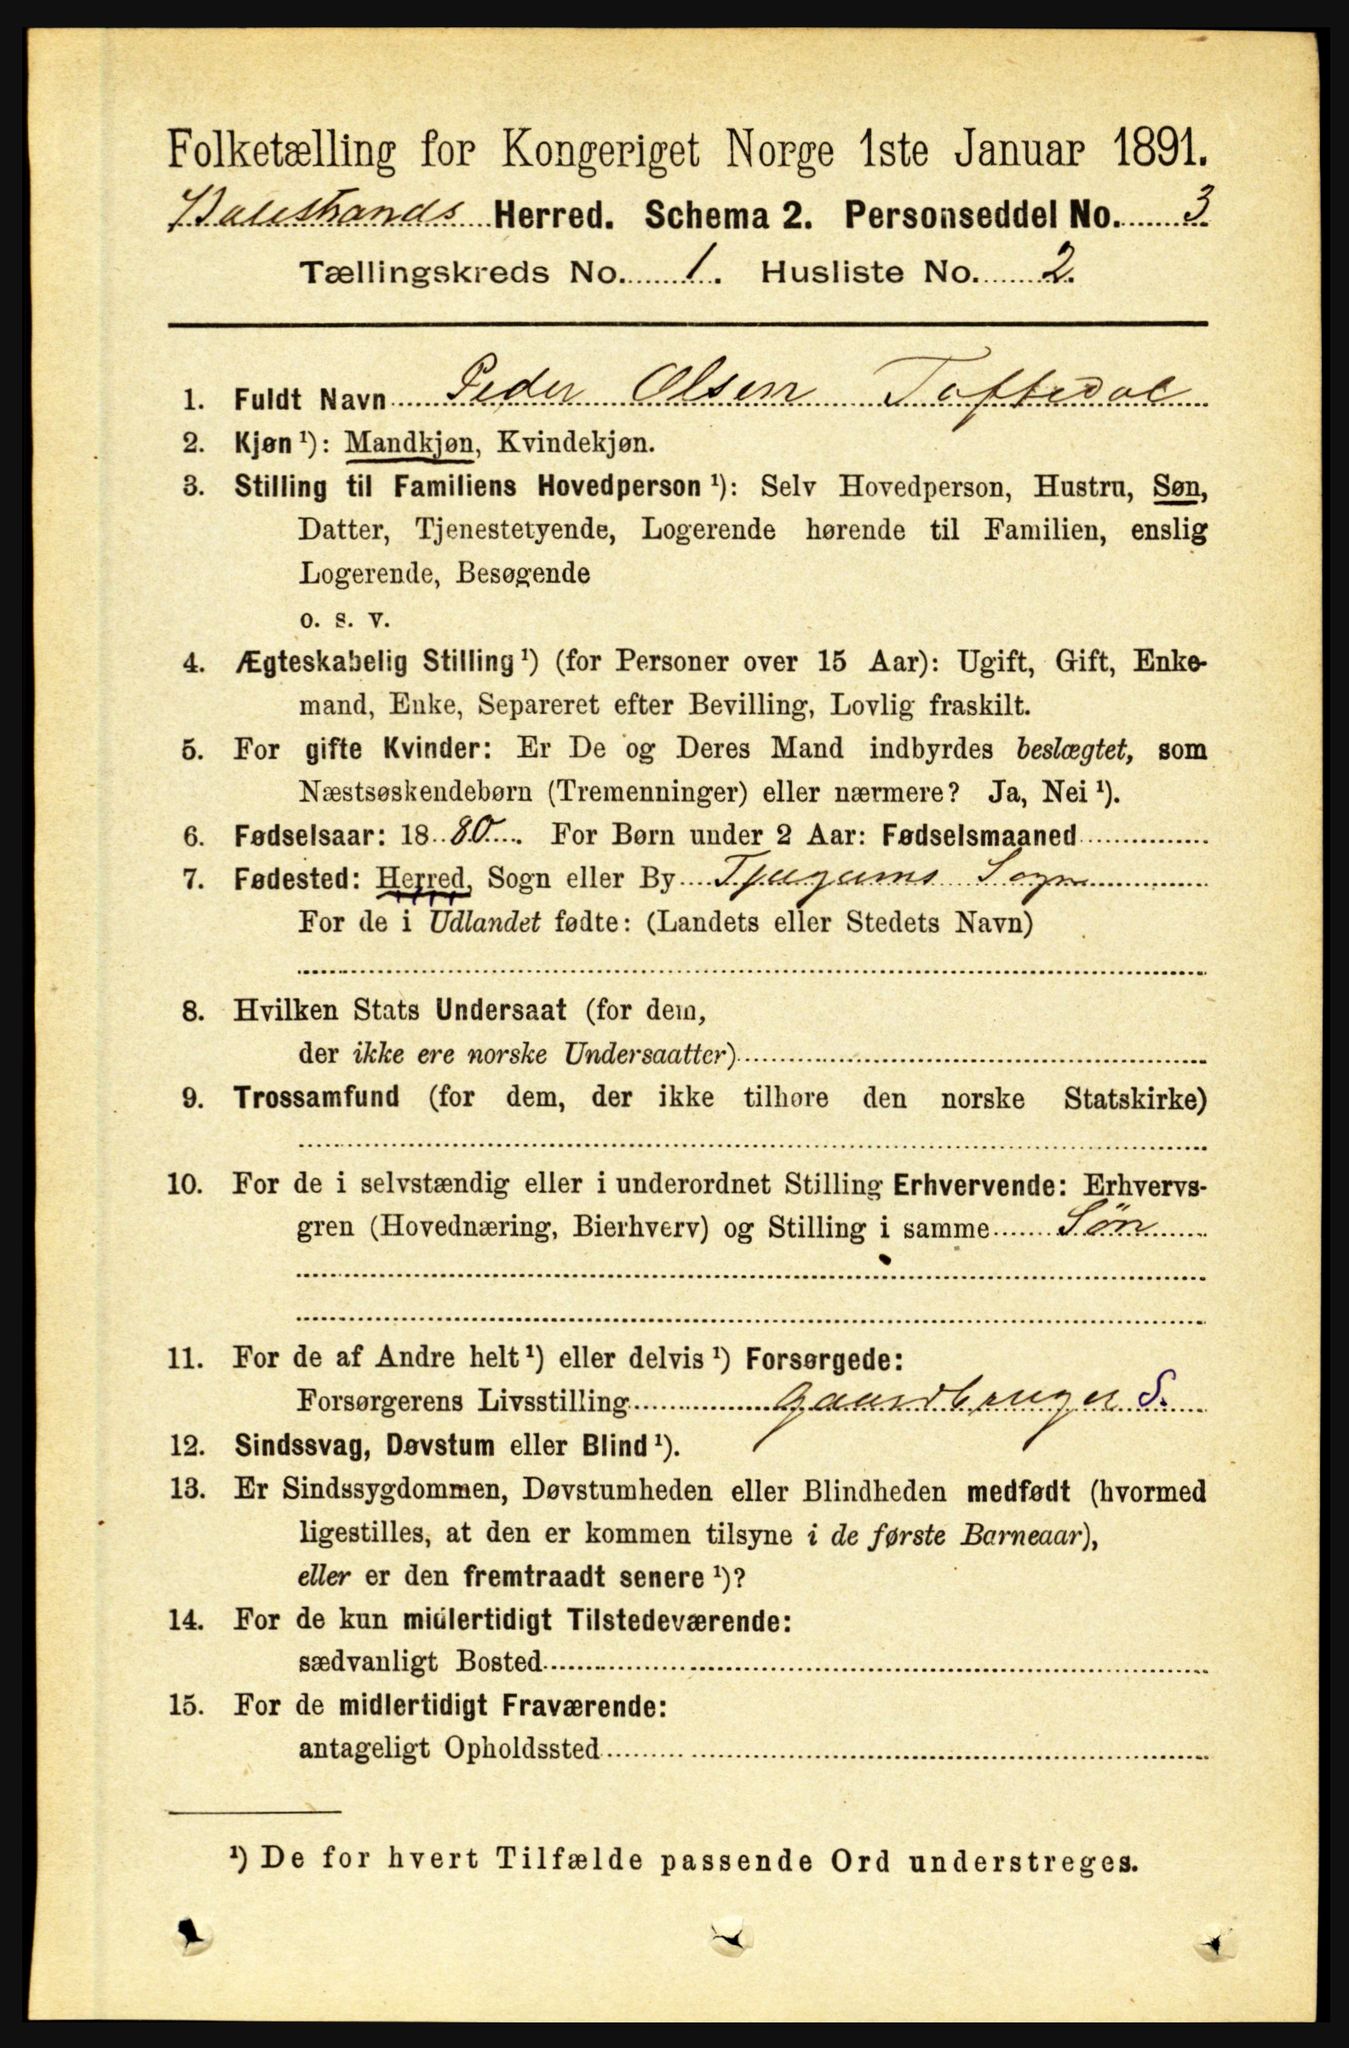 Folketælling for Kongeriget Norge 1ste Januar 1891.
Balestrands Herred. Schema 2. Personseddel No. 3
Tællingskreds No. 1. Husliste No. 2.
1. Fuldt Navn Peder Olsen Toftedal
2. Kjøn ¹): Mandkjøn, Kvindekjøn.
3. Stilling til Familiens Hovedperson ¹): Selv Hovedperson, Hustru, Søn,
Datter, Tjenestetyende, Logerende hørende til Familien, enslig
Logerende, Besøgende
o. s. v.
4. Ægteskabelig Stilling ¹) (for Personer over 15 Aar): Ugift, Gift, Enke-
mand, Enke, Separeret efter Bevilling, Lovlig fraskilt.
5. For gifte Kvinder: Er De og Deres Mand indbyrdes beslægtet, som
Næstsøskendebørn (Tremenninger) eller nærmere? Ja, Nei ¹).
6. Fødselsaar: 18 80. For Børn under 2 Aar: Fødselsmaaned
7. Fødested: Herred, Sogn eller By Tjugums Sogn
For de i Udlandet fødte: (Landets eller Stedets Navn)
8. Hvilken Stats Undersaat (for dem,
der ikke ere norske Undersaatter)
9. Trossamfund (for dem, der ikke tilhøre den norske Statskirke)
10. For de i selvstændig eller i underordnet Stilling Erhvervende: Erhvervs-
gren (Hovednæring, Bierhverv) og Stilling i samme Søn
11. For de af Andre helt ¹) eller delvis ¹) Forsørgede:
Forsørgerens Livsstilling gaardbruger S.
12. Sindssvag, Døvstum eller Blind ¹).
13. Er Sindssygdommen, Døvstumheden eller Blindheden medfødt (hvormed
ligestilles, at den er kommen tilsyne i de første Barneaar),
eller er den fremtraadt senere ¹)?
14. For de kun midlertidigt Tilstedeværende:
sædvanligt Bosted
15. For de midlertidigt Fraværende:
antageligt Opholdssted
¹) De for hvert Tilfælde passende Ord understreges.